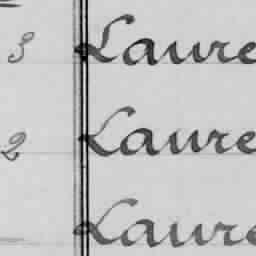 3 Laure
2 Laure
Laure